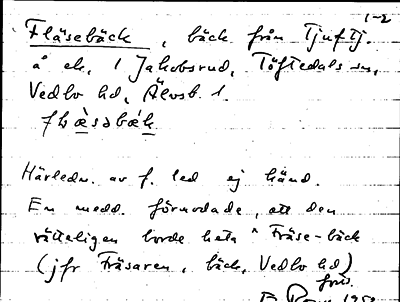 1-2
Fläsebäck, bäck från Tjuftj.
å ek, 1 Jakobsrud, Töftedals sn,
Vedbo hd, Älvsb. l.
flæ̀səbæk
Härledn. av f. led ej känd.
En medd. förmodade, att den
rätteligen borde heta ^ Fräse-bäck
(jfr Fräsaren, bäck, Vedbo hd)